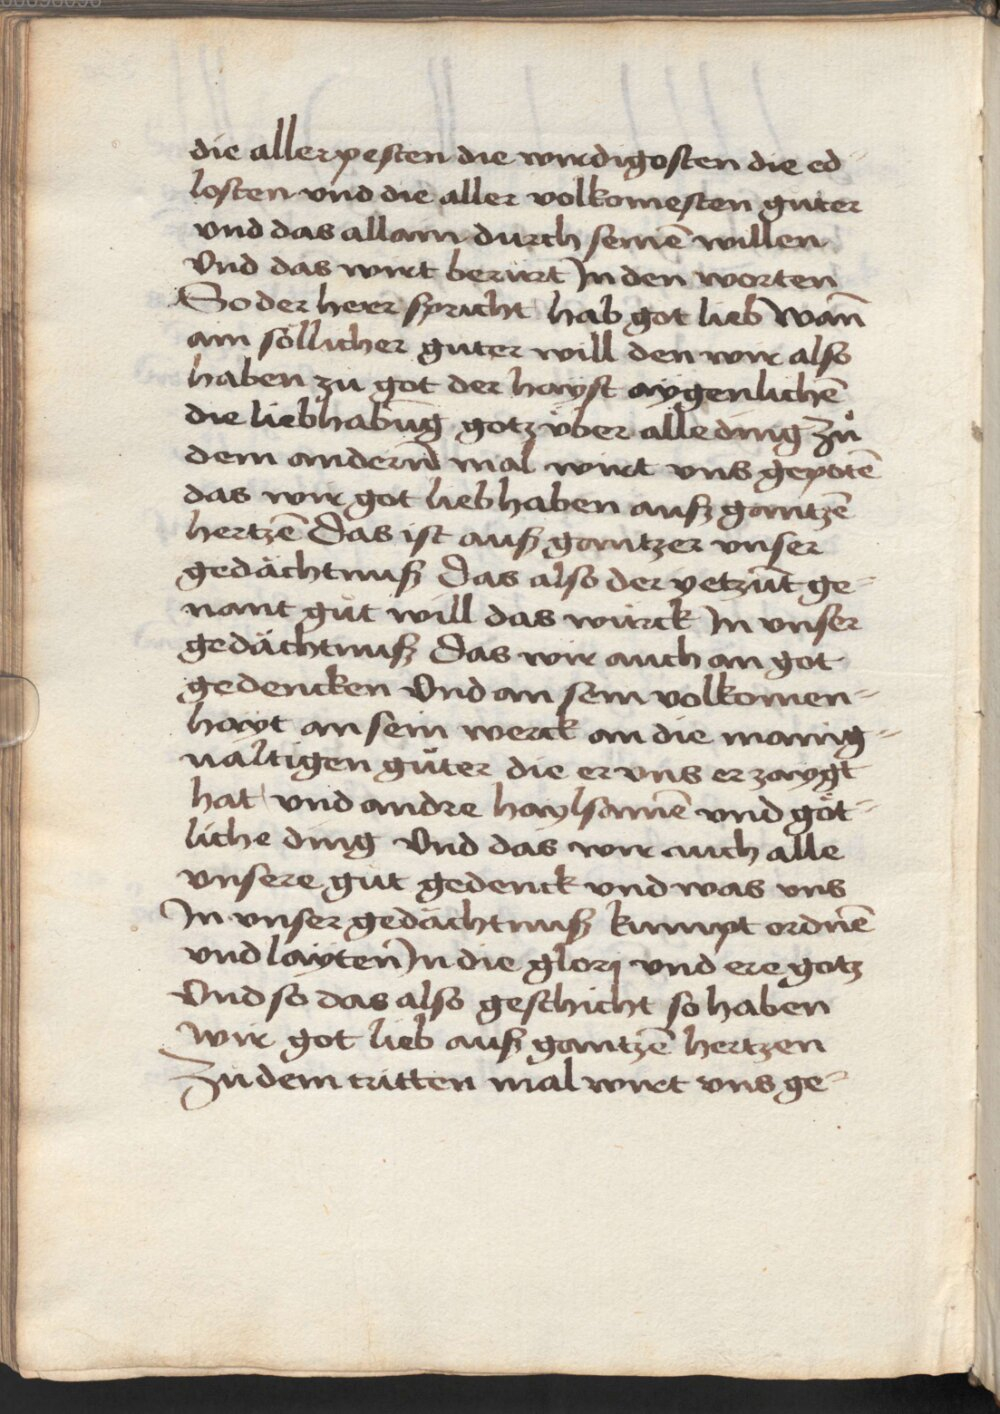 die allerpesten die wirdigosten die ed-
losten vnd die aller volkomesten guter
vnd das allain durch seinē willen
Vnd das wirt berürt In den worten
So der herr spricht hab got lieb Wan̄
ain söllicher guter will den wir also
haben zu got der hayst aÿgenlichē
die liebhabūg gotz über alle ding Zů
dem andern̄ mal wirt vns gepotē
das wir got lieb haben auß gantzē
hertzē Das ist auß gantzer vnser
gedächtnuß Das also der yetzūt ge-
nant gůt will das würck In vnser
gedächtnuß Das wir auch an got
gedencken Vnd an sein volkomen-
hayt an sein werck an die manig-
ualtigen gůter die er vns erzaygt
hat vnd andre haylsamē vnd göt-
liche ding Vnd das wir auch alle
vnsere gůt gedenck vnd was vns
In vnser gedächtnuß kumpt ordnē
vnd layten In die glorj vnd ere gotz
Vnd so das also geschicht so haben
wir got lieb auß gantzē hertzen
Zu dem tritten mal wirt vns ge-